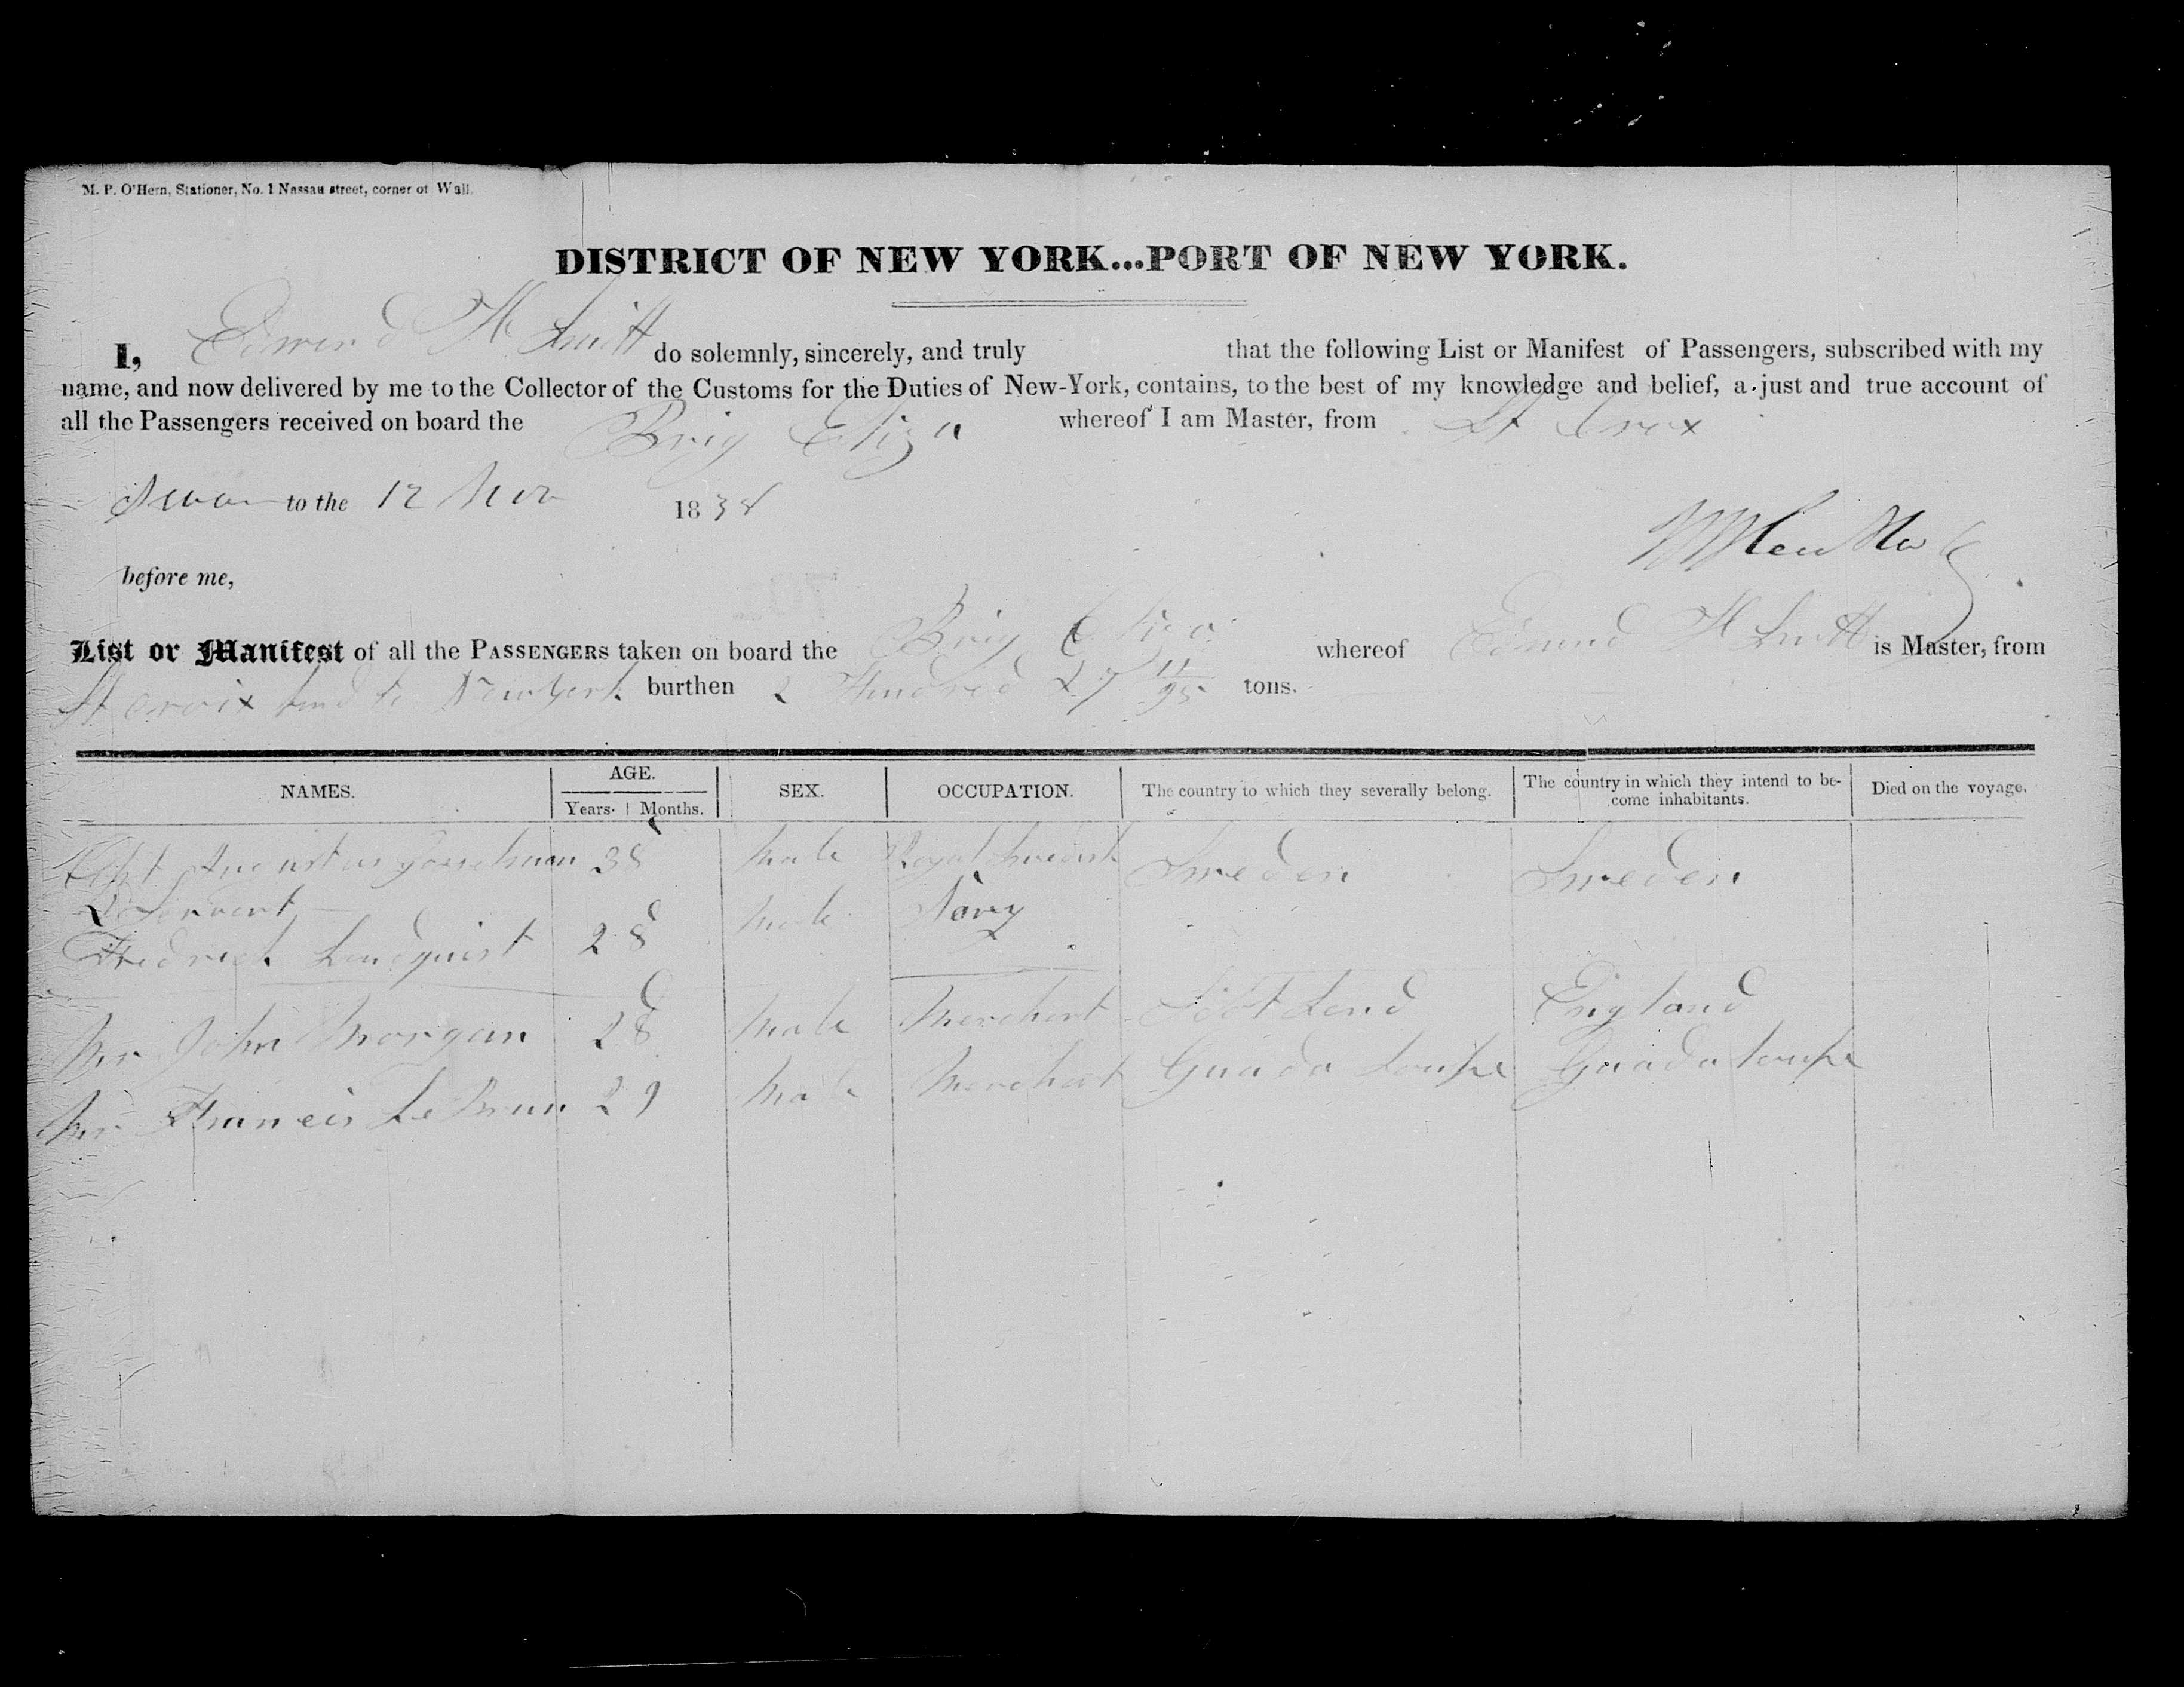 M. P. O'Hern, Stationer, No. 1 Nassau street, corner of Wall.
DISTRICT OF NEW YORK...PORT OF NEW YORK.
I, Edmund H Smith do solemnly, sincerely, and truly that the following List or Manifest of Passengers, subscribed with my
name, and now delivered by me to the Collector of the Customs for the Duties of New-York, contains, to the best of my knowledge and belief, a just and true account of
all the Passengers received on board the Brig Eliza whereof I am Master, from St Croix
Sworn to the 12 Nov 1838
before me,
List or Manifest of all the PASSENGERS taken on board the Brig Eliza whereof Edmund H Smith is Master, from
St Croix to New York burthen 2 Hundred 27 11/95 tons.
NAMES. AGE. SEX. OCCUPATION. The country to which they severally belong. The country in which they intend to be-
Years. Months. come inhabitants. Died on the voyage.
Capt Augustus Gosselman 38 Male Royal Swedish Sweden Sweden
& Servant Male Navy
Fredrich Lindquist 28
Mr John Morgan 28 Male Merchant Scotland England
Mr Francis Le Brun 29 Male Merchant Guadaloupe Guadaloupe